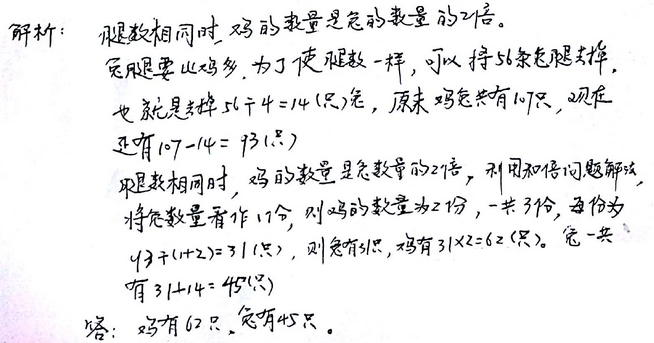 解析： 腿数相同时,鸡的数量是兔的数量的2倍。
兔腿要比鸡多,为了使腿数一样,可以将56条兔腿去掉,
也就是去掉56÷4=14(只)兔,原来鸡兔共有107只,现在
还有107-14=93(只)
腿数相同时,鸡的数量是兔数量的2倍,利用和倍问题解法,
将兔数量看作1份,则鸡的数量为2份,一共3份,每份为
93÷(1+2)=31(只),则兔有31只,鸡有31×2=62(只)。兔一共
有31+14=45(只)
答：鸡有62只、兔有45只。